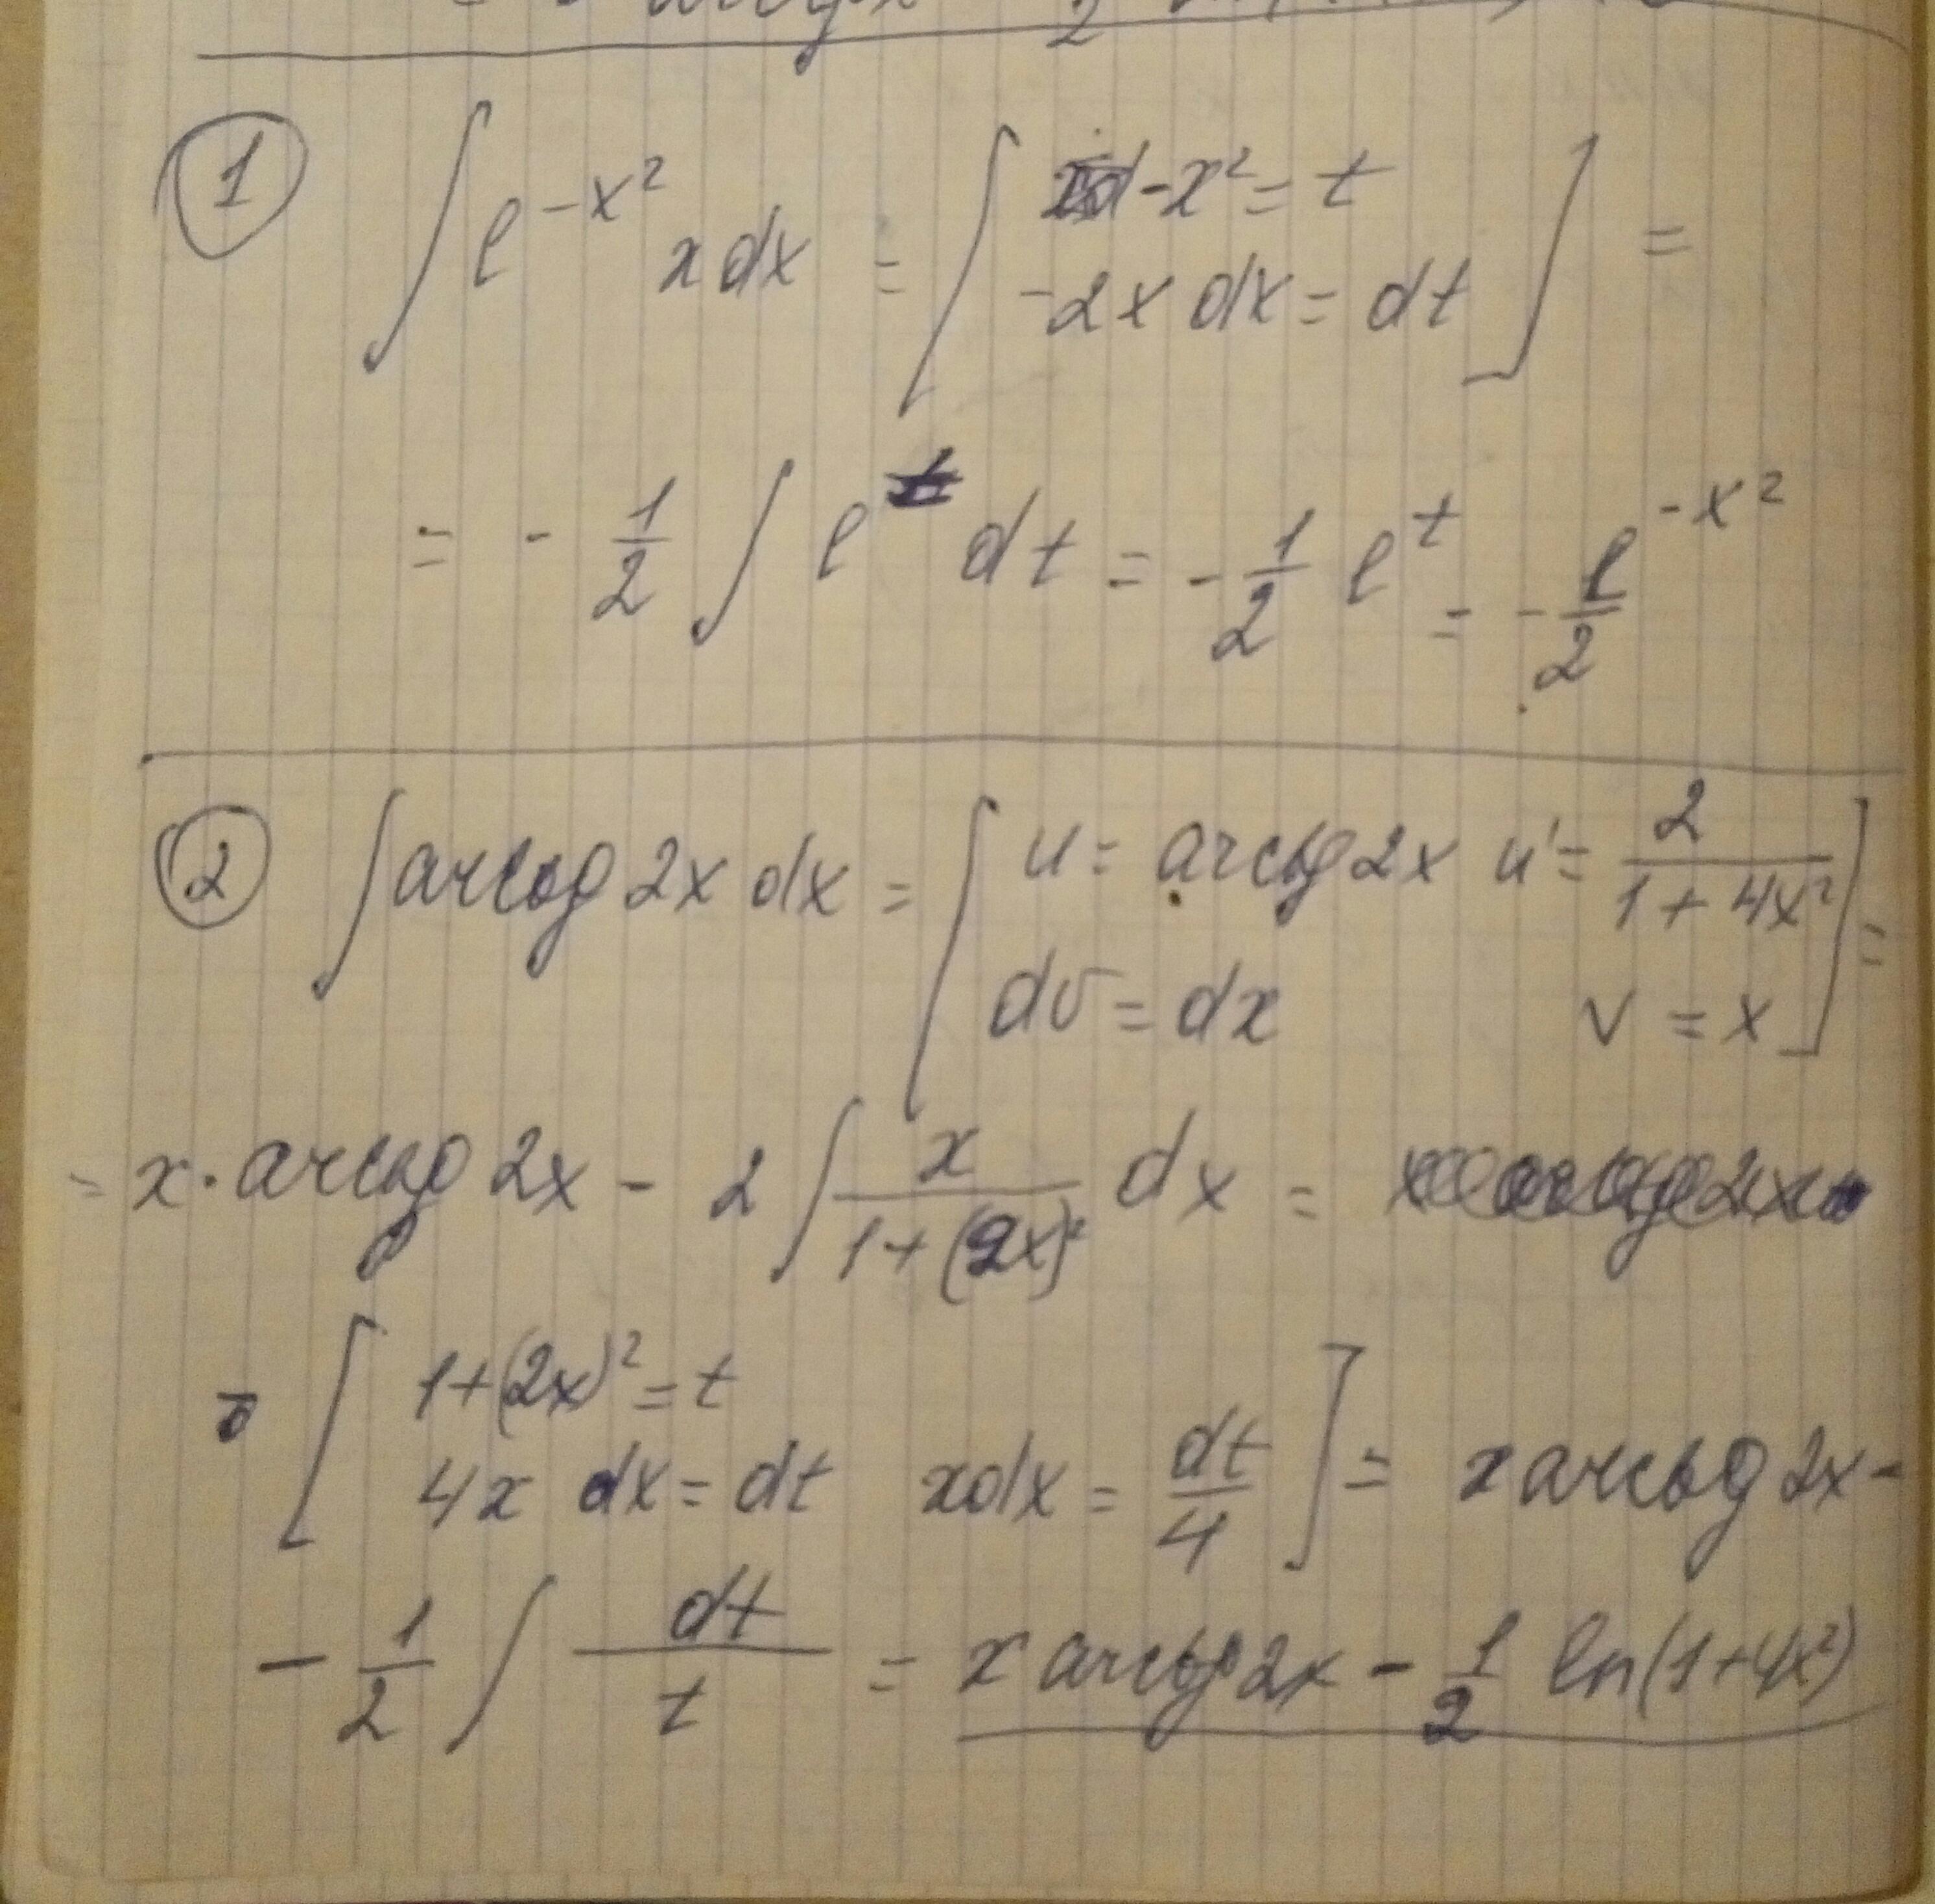 ① ∫ e^{-x²} x dx = [ -x² = t
-2x dx = dt ] =
= - 1/2 ∫ e^t dt = - 1/2 e^t = - e^{-x²}/2
② ∫ arctg 2x dx = [ u = arctg 2x u' = 2/(1 + 4x²)
dv = dx v = x ] =
= x · arctg 2x - 2 ∫ x/(1 + (2x)²) dx =
= [ 1 + (2x)² = t
4x dx = dt xdx = dt/4 ] = x arctg 2x -
- 1/2 ∫ dt/t = x arctg 2x - 1/2 ln(1 + 4x²)